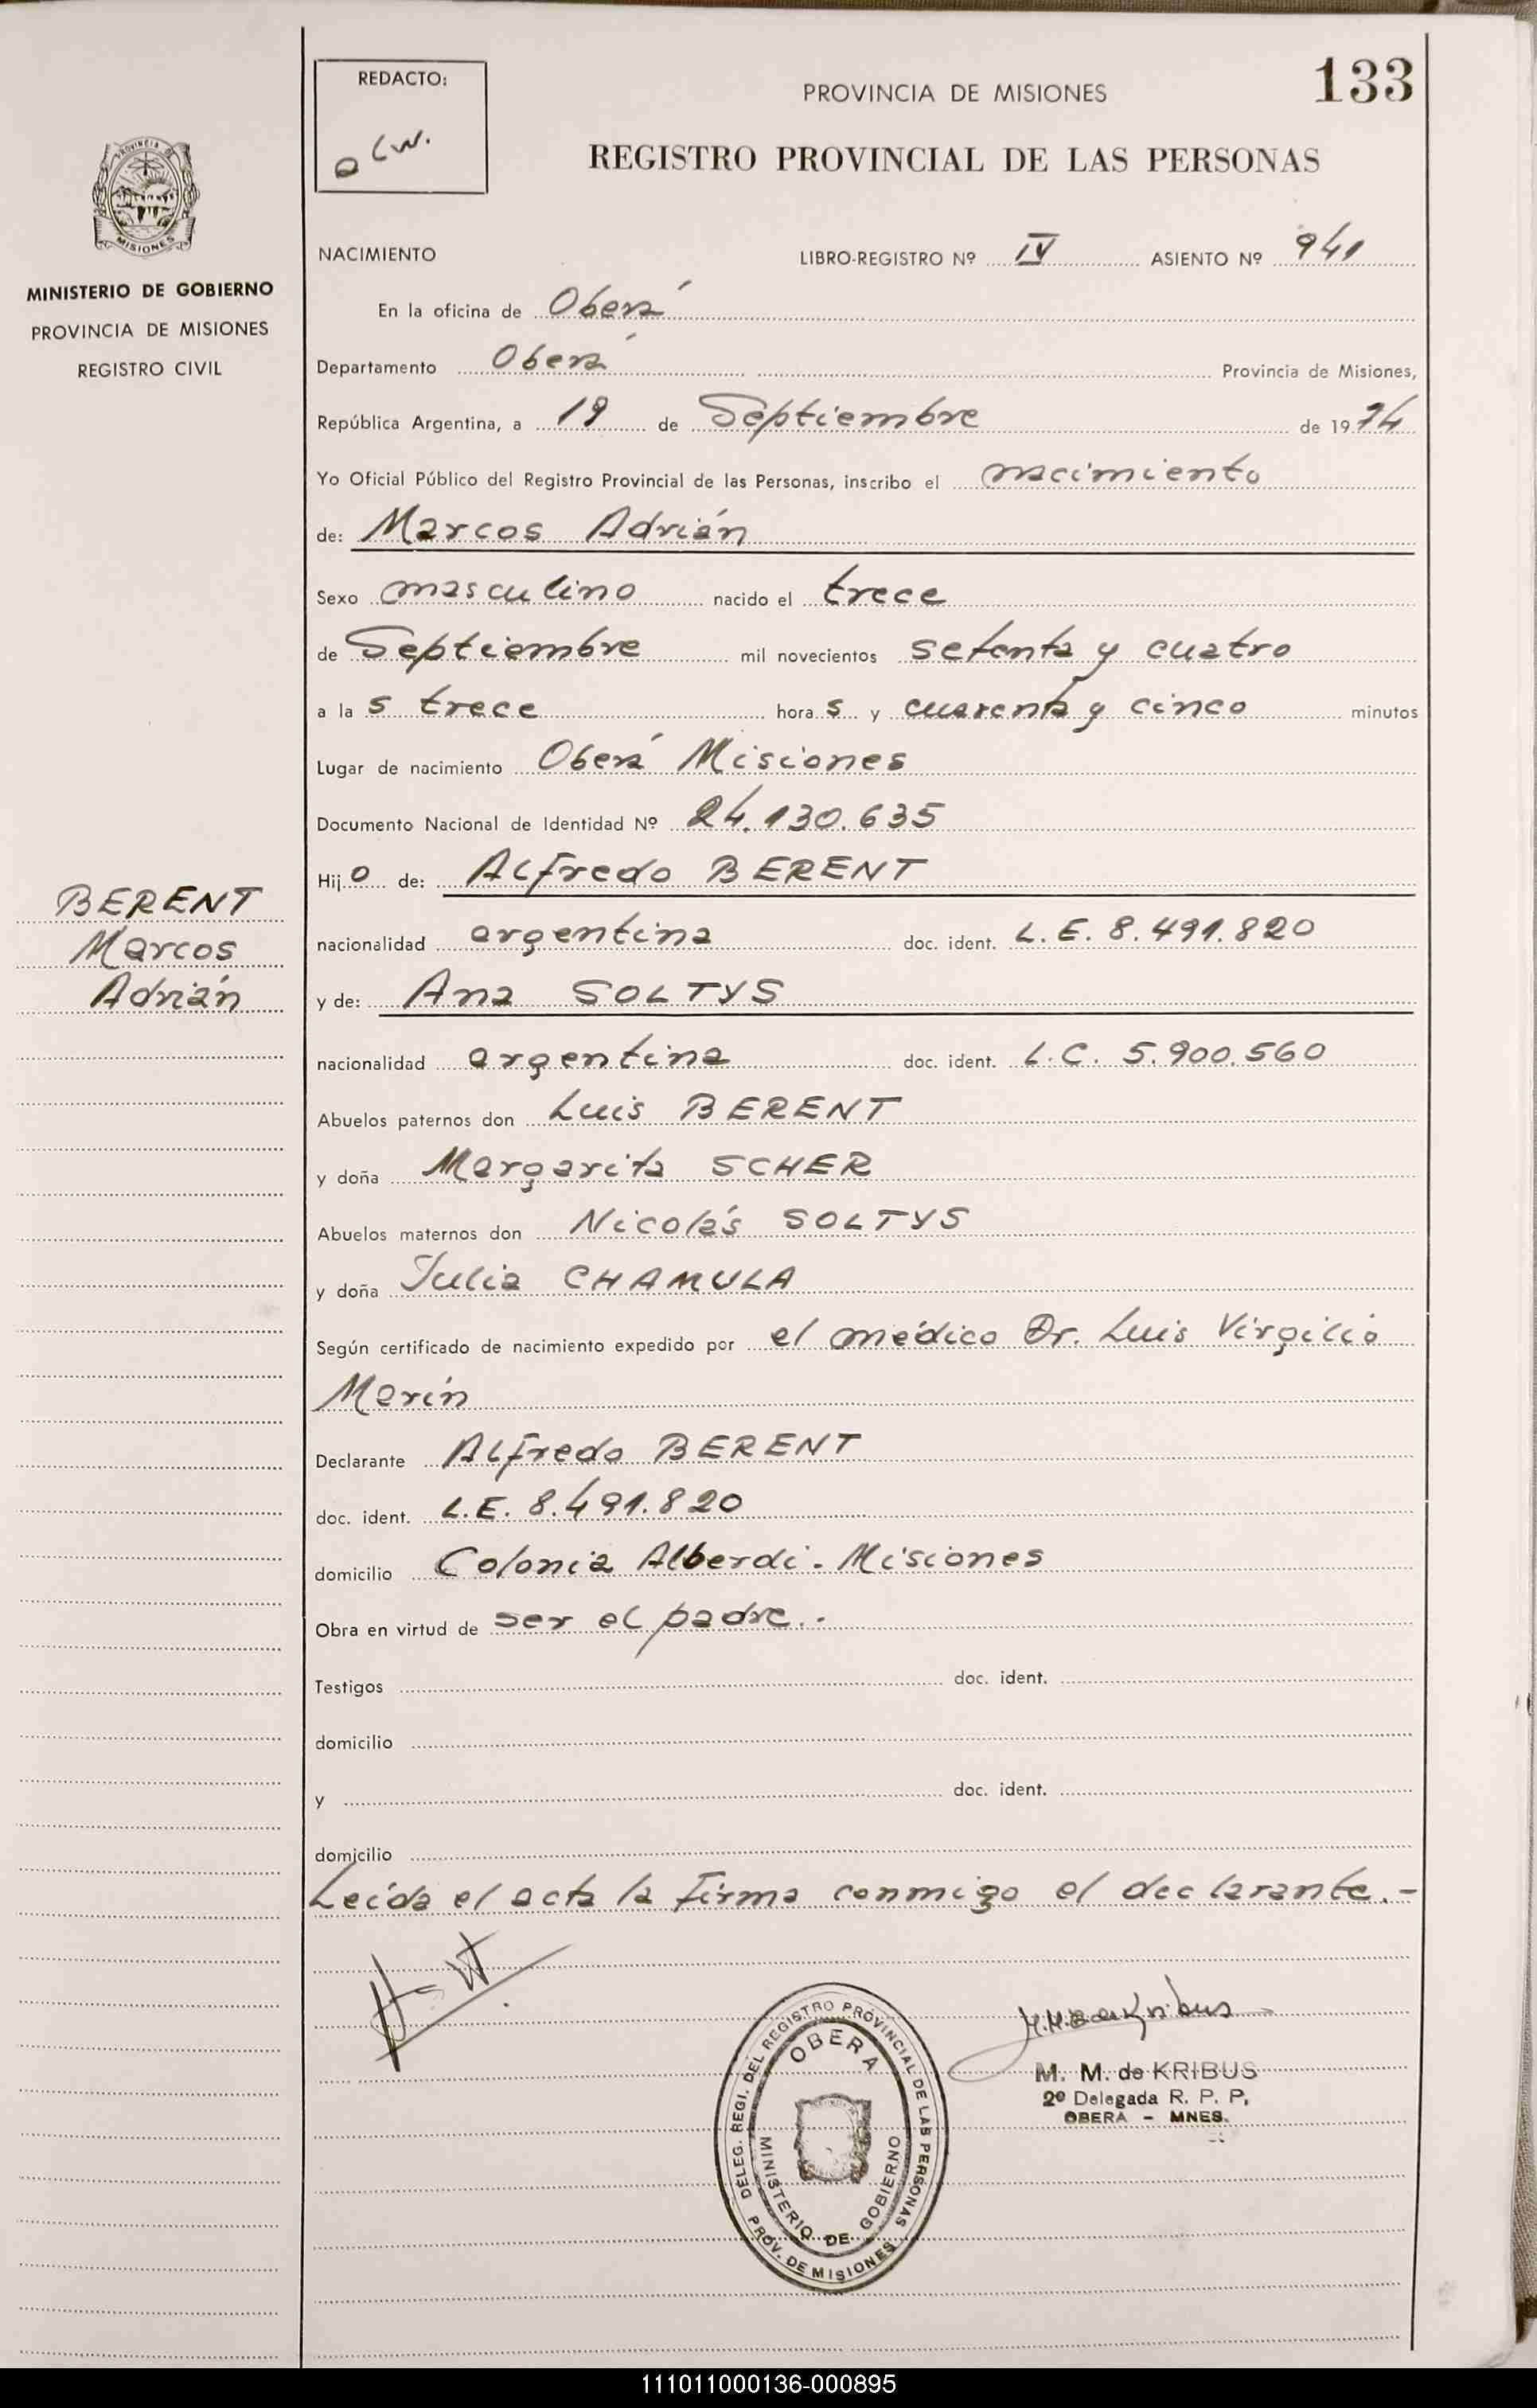 REDACTO:
PROVINCIA DE MISIONES
133
REGISTRO PROVINCIAL DE LAS PERSONAS
PROVINCIA DE
MISIONES
MINISTERIO DE GOBIERNO
PROVINCIA DE MISIONES
REGISTRO CIVIL
NACIMIENTO LIBRO-REGISTRO Nº IV ASIENTO Nº 941
En la oficina de Oberá
Departamento Oberá Provincia de Misiones,
República Argentina, a 19 de Septiembre de 1974
Yo Oficial Público del Registro Provincial de las Personas, inscribo el nacimiento
de: Marcos Adrián
Sexo masculino nacido el trece
de Septiembre mil novecientos setenta y cuatro
a la s trece hora s y cuarenta y cinco minutos
Lugar de nacimiento Oberá Misiones
Documento Nacional de Identidad Nº 24.130.635
Hij o de: Alfredo BERENT
BERENT
Marcos
Adrián
nacionalidad argentina doc. ident. L.E. 8.491.820
y de: Ana SOLTYS
nacionalidad argentina doc. ident. L.C. 5.900.560
Abuelos paternos don Luis BERENT
y doña Margarita SCHER
Abuelos maternos don Nicolás SOLTYS
y doña Julia CHAMULA
Según certificado de nacimiento expedido por el médico Dr. Luis Virgilio
Marín
Declarante Alfredo BERENT
doc. ident. L.E. 8.491.820
domicilio Colonia Alberdi - Misiones
Obra en virtud de ser el padre.-
Testigos doc. ident.
domicilio
y doc. ident.
domicilio
Leída el acta la firma conmigo el declarante.-
DELEG. REGI. DEL REGISTRO PROVINCIAL DE LAS PERSONAS
PROV. DE MISIONES
OBERA
MINISTERIO DE GOBIERNO
M. M. de KRIBUS
2º Delegada R. P. P.
OBERA - MNES.
111011000136-000895